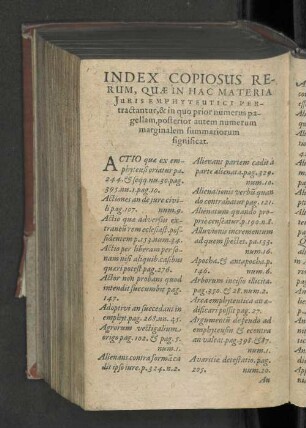 INDEX COPIOSUS RE-
RUM, QUÆ IN HAC MATERIA
JURIS EMPHYTEUTICI PER-
tractantur, & in quo prior numerus pa-
gellam, posterior autem numerum
marginalem summariorum
significat.
ACTIO quæ ex em-
phyteusi oriatur pa-
244. & seqq. nu. 30. pag.
395. nu. 1. pag. 10.
Actiones an de jure civi-
li pag. 107. num. 9.
Actio quæ adversus ex-
traneū rem ecclesiast. pos-
sidentem p. 153. num. 34.
Actio per liberam perso-
nam nisi aliquib. casibus
quæri potest pag. 276.
Actor non probans quod
intendit succumbit pag.
147.
Adoptivi an succedant in
emphyt. pag. 261. nu. 45.
Agrorum vectigalium
origo pag. 102. & pag. 5.
num. 1.
Alienans contra formā cā-
dit ipso jure. p. 324. n. 2.
Alienans partem cadit à
parte alien. ata pag. 329.
num. 10.
Alienationis verbū quan-
do contrahatur pag. 121.
Alienatum quando pro-
prie censeatur. p. 190. n. 1.
Alluvionis incrementum
ad quem spectet. pa. 133.
num. 16.
Apocha. & antapocha. p.
140. num. 6.
Arborum incisio illicita
pag. 350. & 28. num. 2.
Area emphyteutica an æ-
dificari possit pag. 27.
Argumentū à feudo ad
emphyteusin & econtra
an valeat pag. 391. & 17.
num. 1.
Avaritiæ detestatio. pag.
205. num. 20.
An